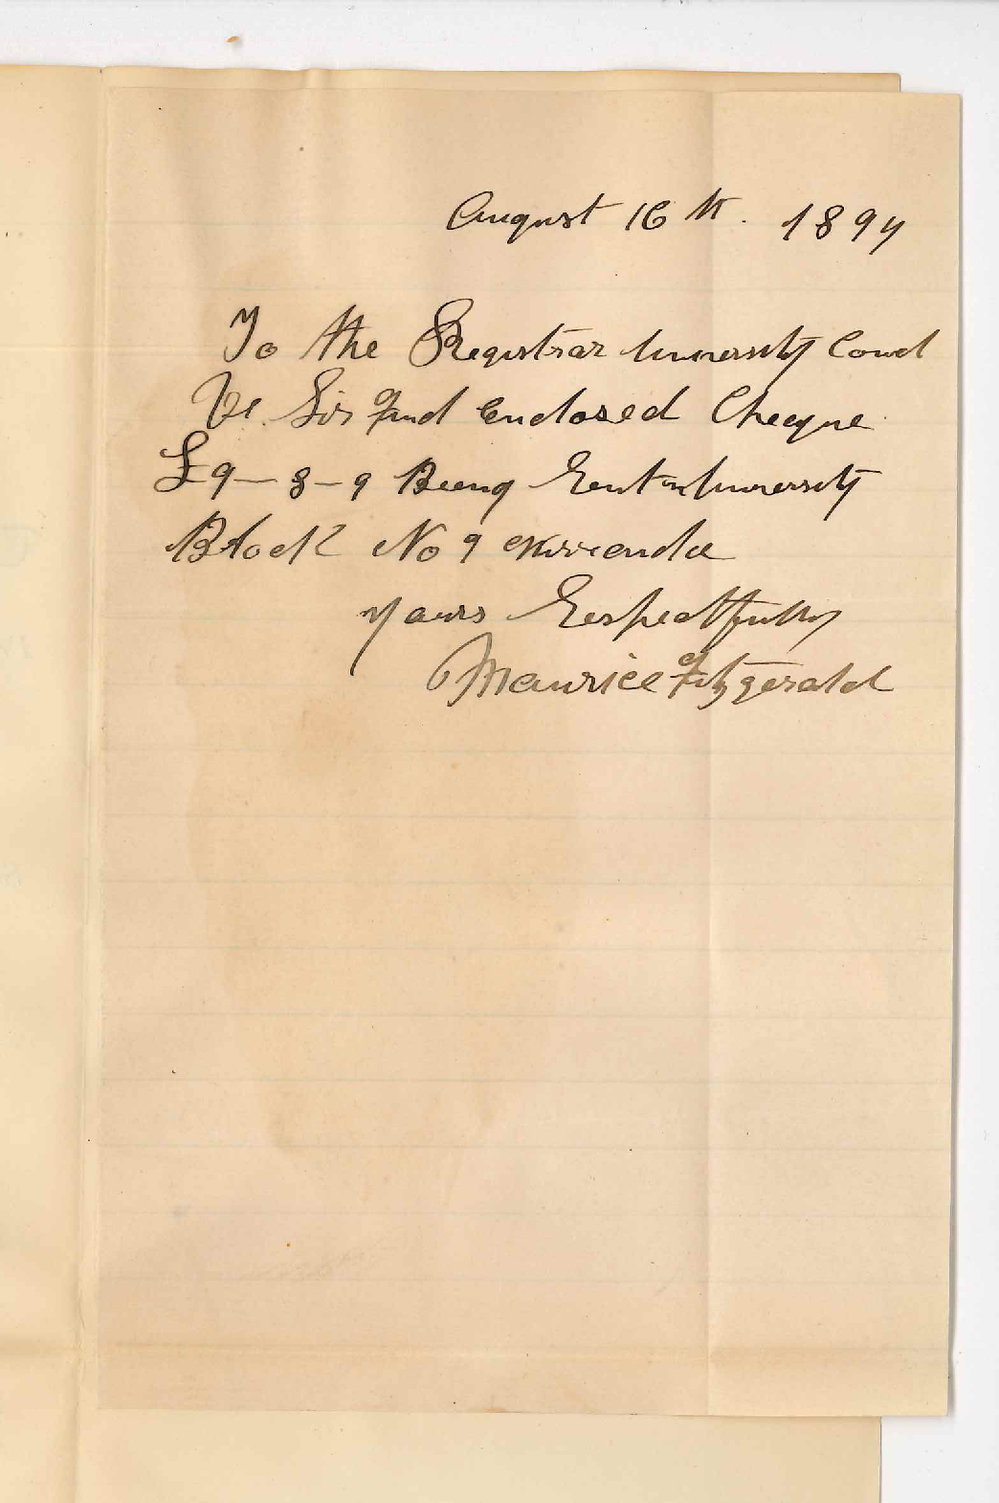 August 16th. 1894
To the Registrar University Council
Sir Find Enclosed Cheque
£9-8-9 Being Rent on University
Block No 9
Yours Respectfully
Maurice Fitzgerald